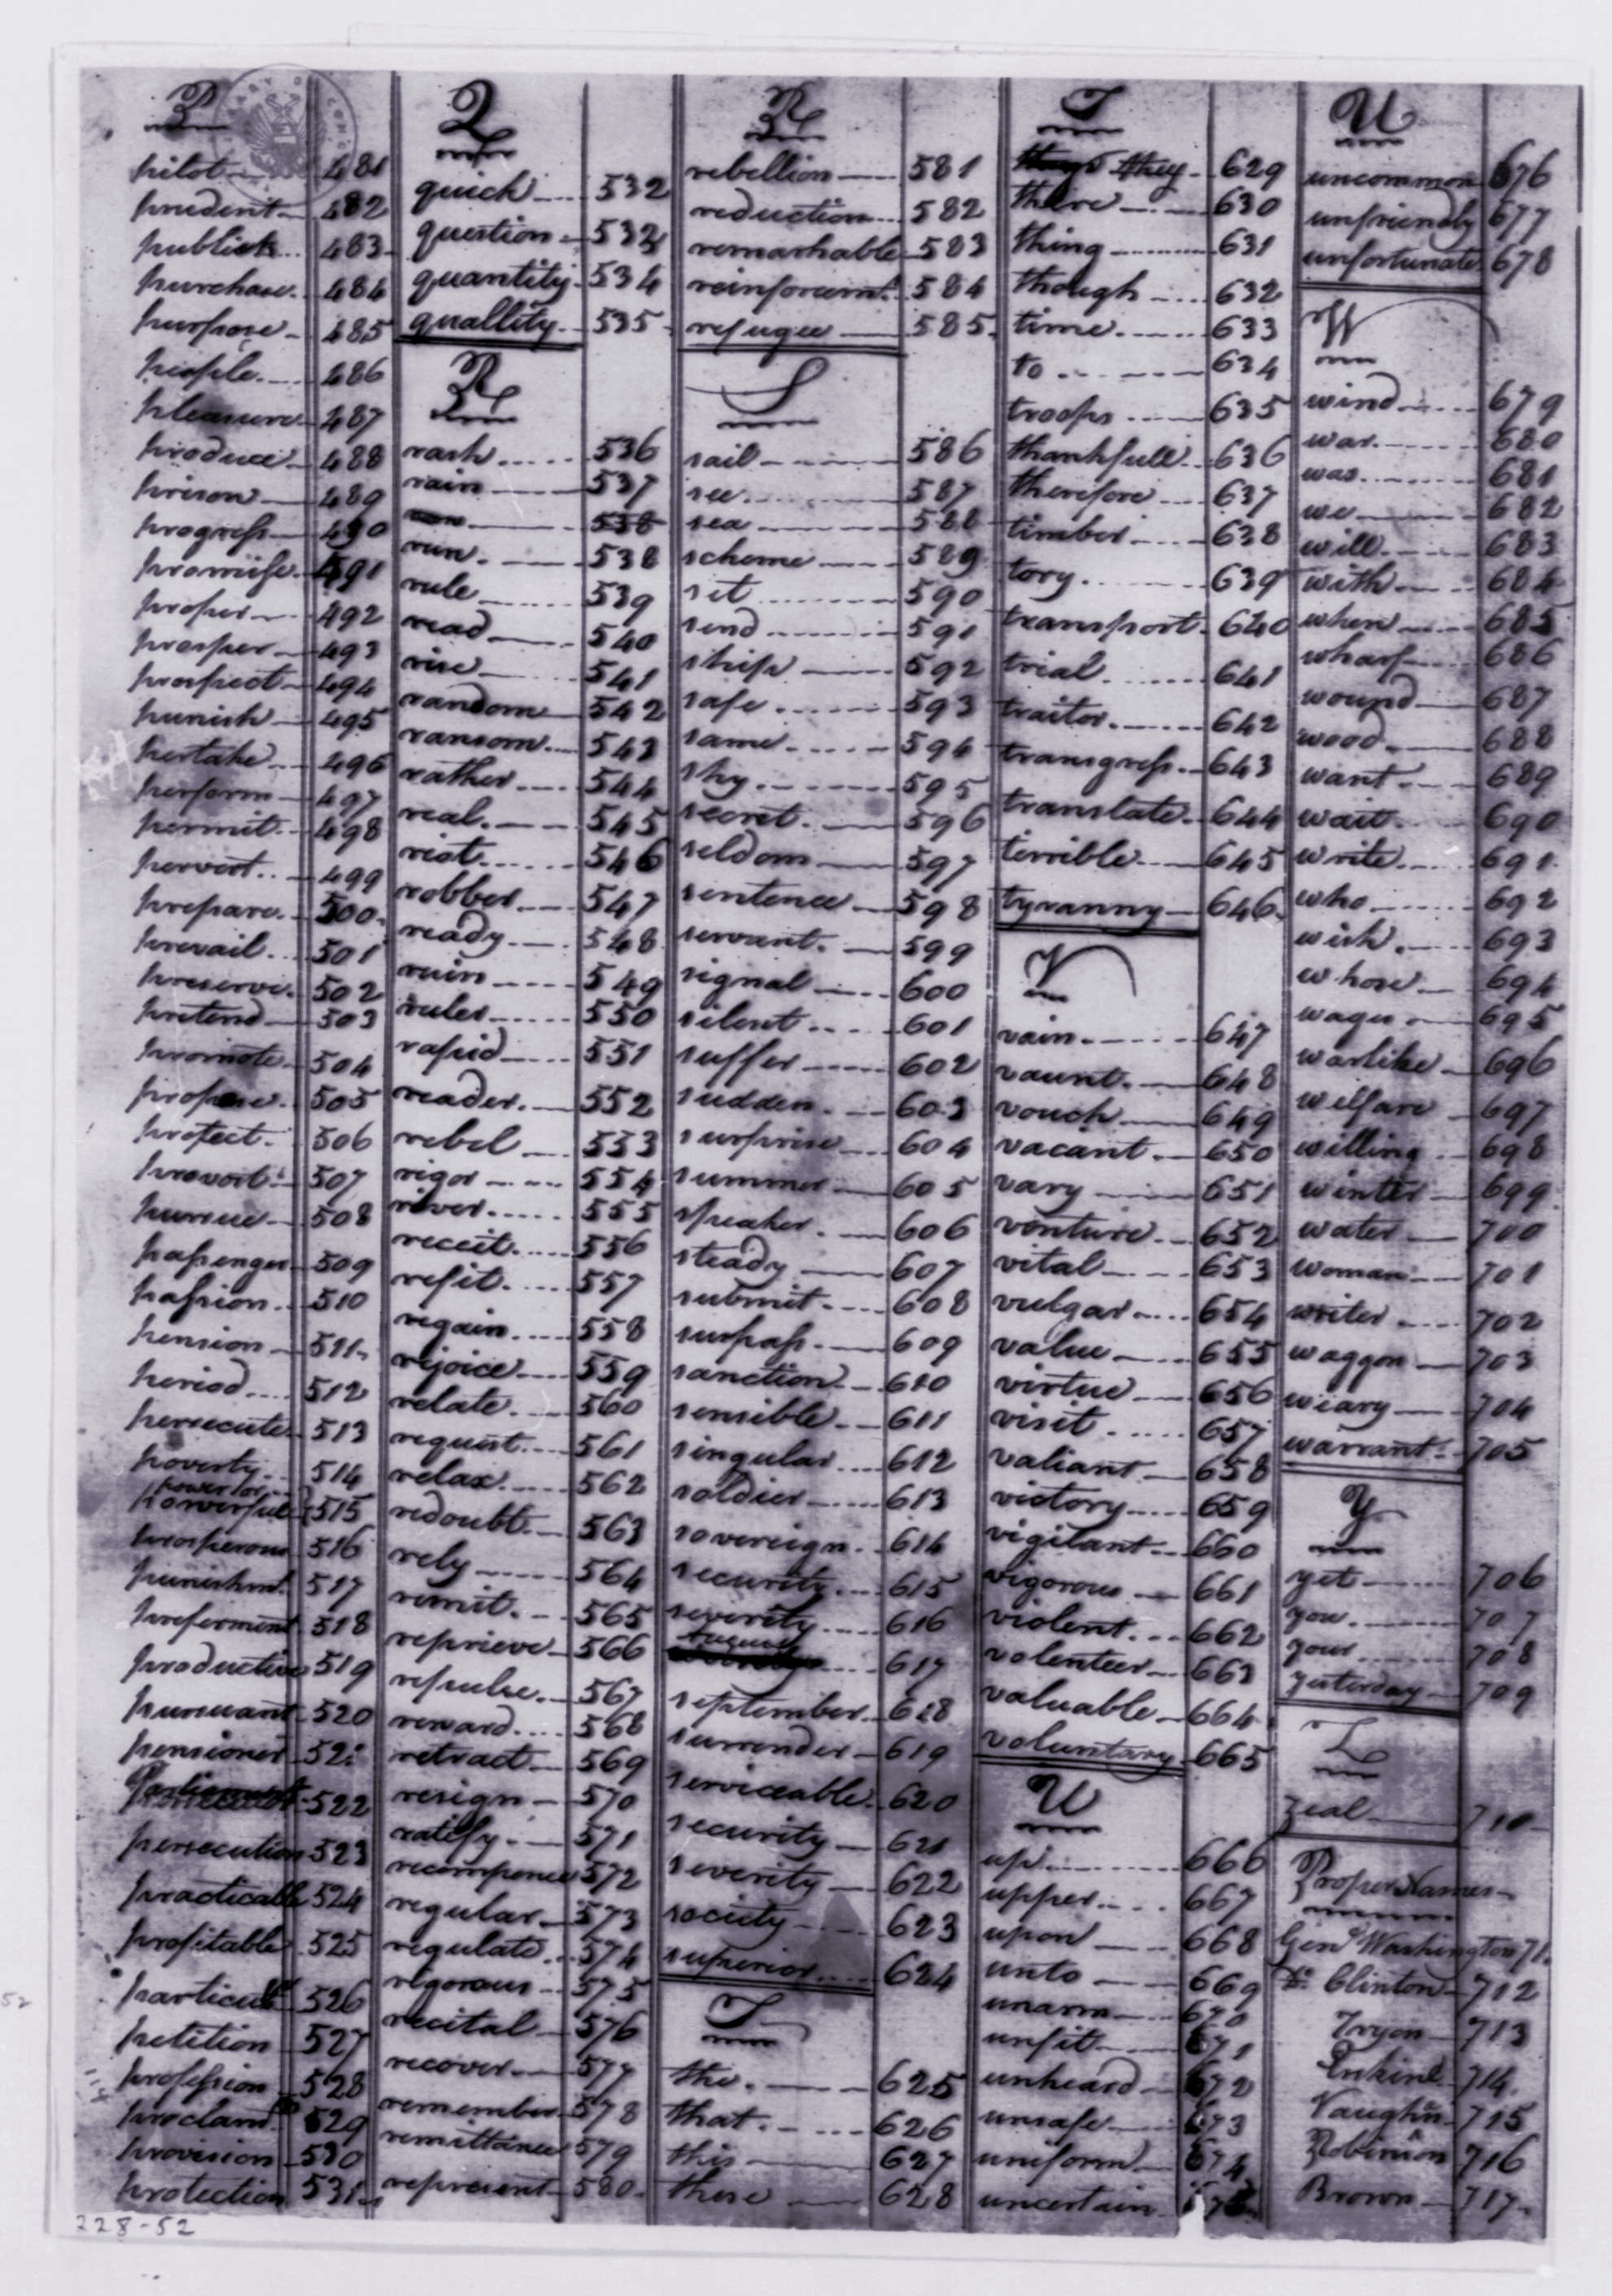 P
pilot 481
prudent 482
publick 483
purchase 484
purpose 485
people 486
pleasure 487
produce 488
prison 489
progress 490
promise 491
proper 492
prosper 493
prospect 494
punish 495
pertake 496
perform 497
permit 498
pervert 499
prepare 500
prevail 501
preserve 502
pretend 503
promote 504
propose 505
protect 506
provort 507
pursue 508
passenger 509
passion 510
pension 511
period 512
persecute 513
poverty 514
power or
powerful 515
prosperous 516
punishmt. 517
preferment 518
productive 519
pursuant 520
pensioner 52
522
persecution 523
practicable 524
profitable 525
particul 526
petition 527
profession 528
proclam 529
provision 530
protection 531
Q
quick 532
question 533
quantity 534
quallity 535
R
rash 536
rain 537
538
run 538
rule 539
read 540
rise 541
random 542
ransom 543
rather 544
real 545
riot 546
robber 547
ready 548
ruin 549
ruler 550
rapid 551
reader 552
rebel 553
rigor 554
river 555
receit 556
refit 557
regain 558
rejoice 559
relate 560
request 561
relax 562
redoubt 563
rely 564
remit 565
reprieve 566
repulse 567
reward 568
retract 569
resign 570
ratify 571
recompence 572
regular 573
regulate 574
rigorous 575
recital 576
recover 577
remember 578
remittance 579
represent 580
R
rebellion 581
reduction 582
remarkable 583
reinforcemt. 584
refugee 585
S
sail 586
see 587
sea 588
scheme 589
set 590
send 591
ship 592
safe 593
same 594
sky 595
secret 596
seldom 597
sentence 598
servant 599
signal 600
silent 601
suffer 602
sudden 603
surprise 604
summer 605
speaker 606
steady 607
submit 608
surpass 609
sanction 610
sensible 611
singular 612
soldier 613
sovereign 614
security 615
severity 616
617
september 618
surrender 619
serviceable 620
security 621
severity 622
society 623
superior 624
T
the 625
that 626
this 627
these 628
T
they 629
there 630
thing 631
though 632
time 633
to 634
troops 635
thankfull 636
therefore 637
timber 638
tory 639
transport 640
trial 641
traitor 642
transgress 643
translate 644
terrible 645
tyranny 646
V
vain 647
vaunt 648
vouch 649
vacant 650
vary 651
venture 652
vital 653
vulgar 654
value 655
virtue 656
visit 657
valiant 658
victory 659
vigilant 660
vigorous 661
violent 662
volenteer 663
valuable 664
voluntary 665
U
up 666
upper 667
upon 668
unto 669
unarm 670
unfit 671
unheard 672
unsafe 673
uniform 674
uncertain
U
uncommon 676
unfriendly 677
unfortunate 678
W
wind 679
war 680
was 681
we 682
will 683
with 684
when 685
wharf 686
wound 687
wood 688
want 689
wait 690
write 691
who 692
wish 693
whose 694
wages 695
warlike 696
welfare 697
willing 698
winter 699
water 700
woman 701
writer 702
waggon 703
weary 704
warrant 705
Y
yet 706
you 707
your 708
yesterday 709
Z
zeal 710
Proper Names
Genl. Washington 711
Do. Clinton 712
Tryon 713
Erskine 714
Vaughn 715
Robinson 716
Brown 717
228-52
52